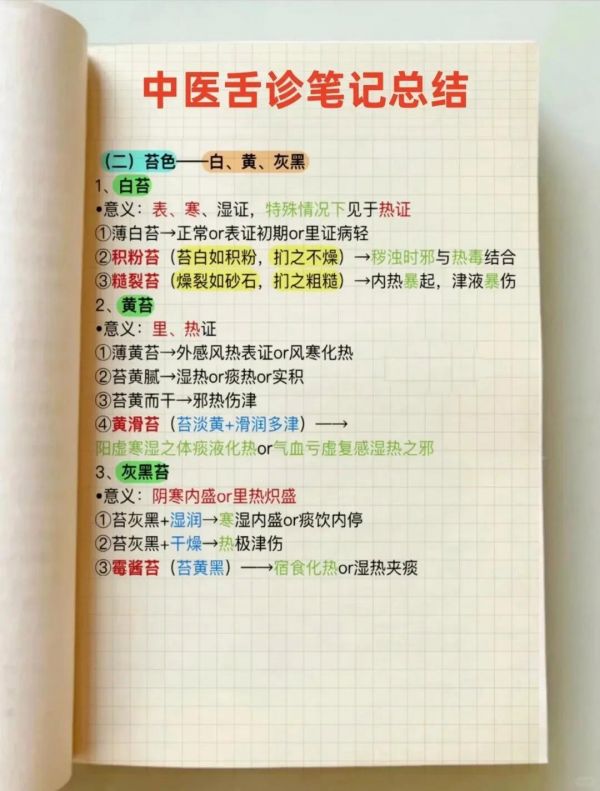 中医舌诊笔记总结
（二）苔色——白、黄、灰黑
1、白苔
•意义：表、寒、湿证，特殊情况下见于热证
①薄白苔→正常or表证初期or里证病轻
②积粉苔（苔白如积粉，扪之不燥）→秽浊时邪与热毒结合
③糙裂苔（燥裂如砂石，扪之粗糙）→内热暴起，津液暴伤
2、黄苔
•意义：里、热证
①薄黄苔→外感风热表证or风寒化热
②苔黄腻→湿热or痰热or实积
③苔黄而干→邪热伤津
④黄滑苔（苔淡黄+滑润多津）——→
阳虚寒湿之体痰液化热or气血亏虚复感湿热之邪
3、灰黑苔
•意义：阴寒内盛or里热炽盛
①苔灰黑+湿润→寒湿内盛or痰饮内停
②苔灰黑+干燥→热极津伤
③霉酱苔（苔黄黑）——→宿食化热or湿热夹痰